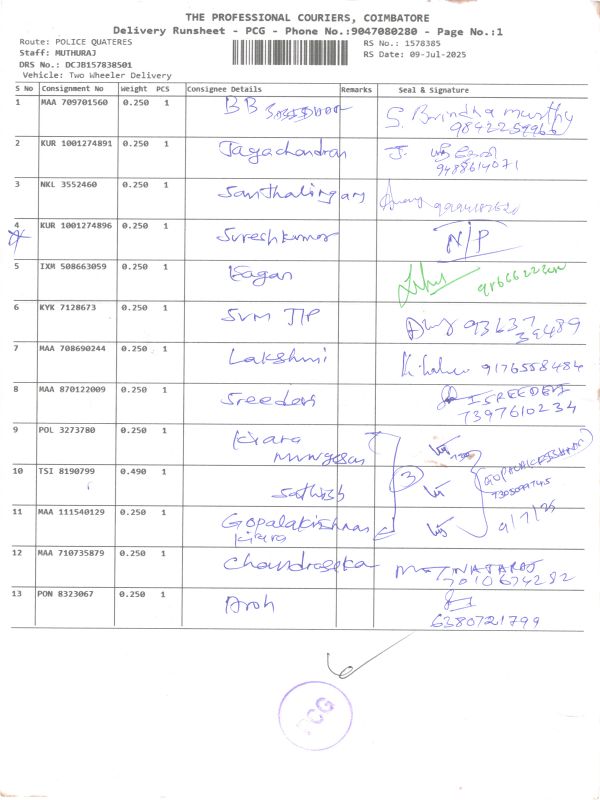 THE PROFESSIONAL COURIERS, COIMBATORE
Delivery Runsheet - PCG - Phone No.:9047080280 - Page No.:1
Route: POLICE QUATERES
Staff: MUTHURAJ
DRS No.: DCJB157838501
Vehicle: Two Wheeler Delivery
RS No.: 1578385
RS Date: 09-Jul-2025
S No Consignment No Weight PCS Consignee Details Remarks Seal & Signature
1 MAA 709701560 0.250 1 BB S. Brindha murthy
2 KUR 1001274891 0.250 1 Jagachandran J.
9488614071
3 NKL 3552460 0.250 1 Santhalingam
4 KUR 1001274896 0.250 1 Sureshkumar N/P
5 IXM 508663059 0.250 1 Gagan
6 KYK 7128673 0.250 1 SVM TIP
7 MAA 708690244 0.250 1 Lakshmi 9176558484
8 MAA 870122009 0.250 1 Sreedevi SREEDEVI
7397610234
9 POL 3273780 0.250 1 Kiara
Murugesan
10 TSI 8190799 0.490 1 Sathish 3
11 MAA 111540129 0.250 1 Gopalakrishnan 9/7/25
Kiara
12 MAA 710735879 0.250 1 Chandraseka NATARAJ
7010674292
13 PON 8323067 0.250 1 Aroh
6380721799
PCG